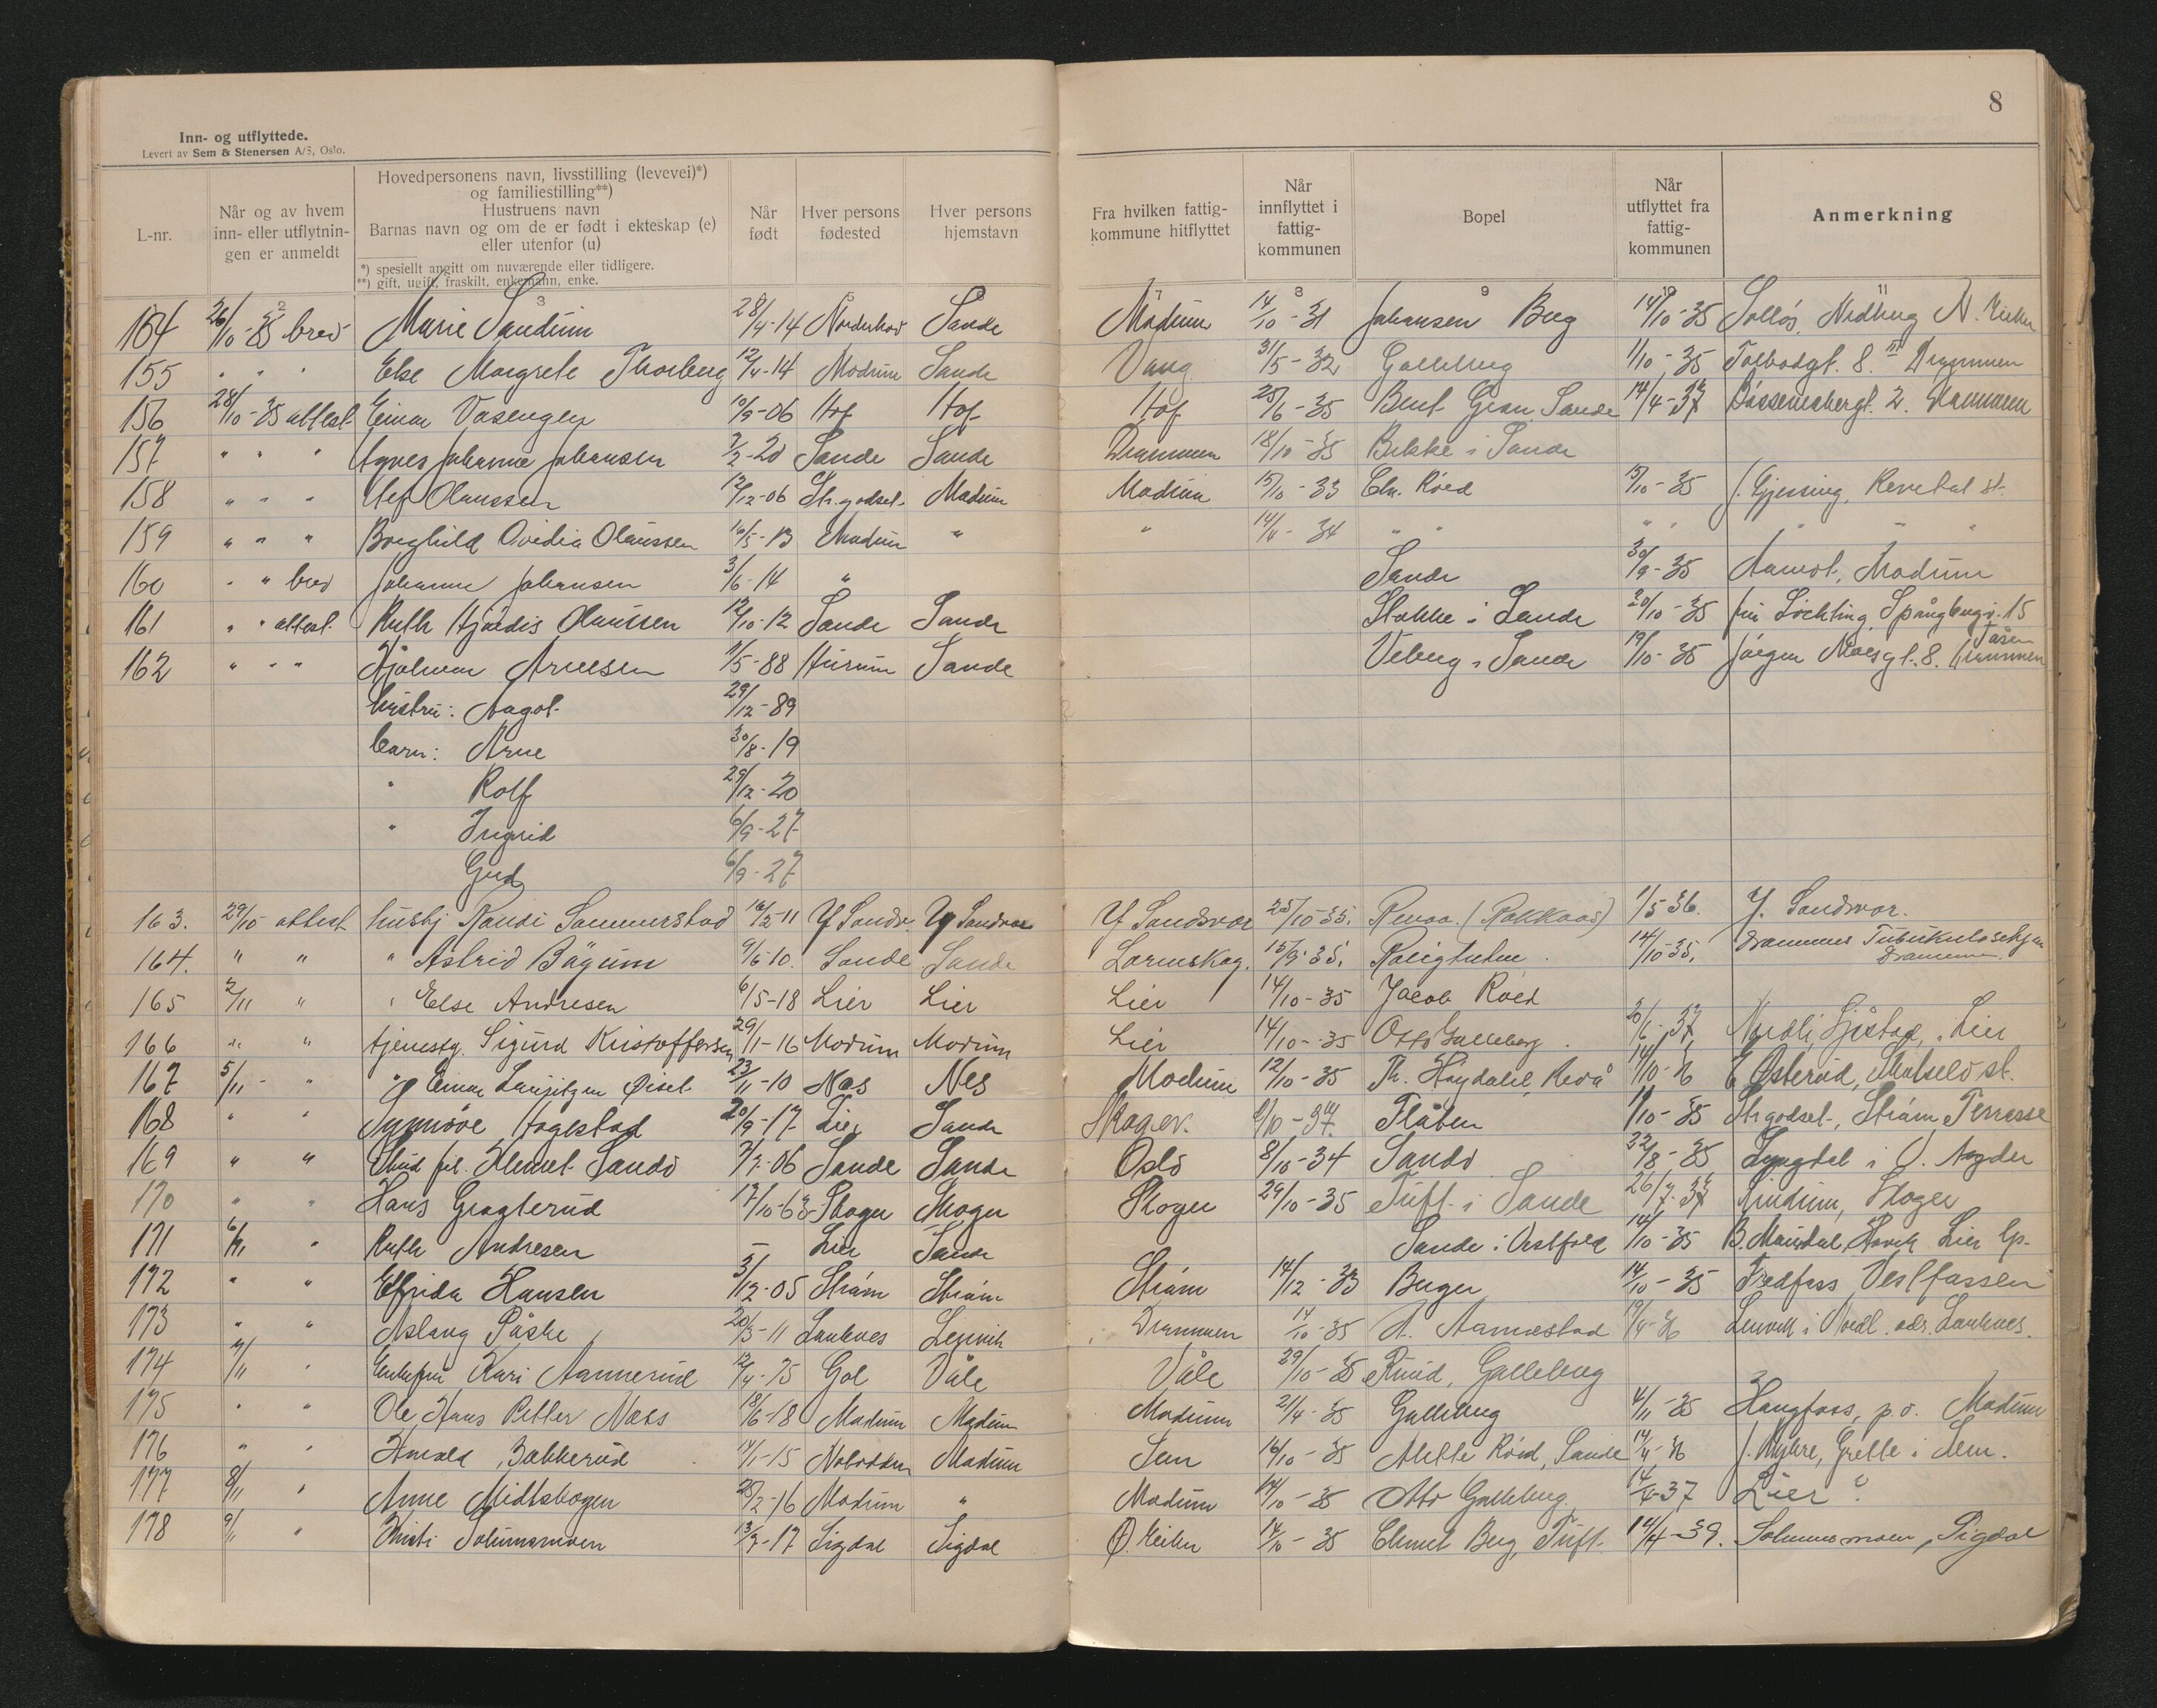 8
Inn- og utflyttede.
Levert av Sem & Stenersen A/S, Oslo.
L-nr.
Når og av hvem inn- eller utflytnin- gen er anmeldt
Hovedpersonens navn, livsstilling (levevei)*) og familiestilling**)
Hustruens navn
Barnas navn og om de er født i ekteskap (e) eller utenfor (u)
*) spesiellt angitt om nuværende eller tidligere.
**) gift, ugift, fraskilt, enkemann, enke.
Når født
Hver persons fødested
Hver persons hjemstavn
Fra hvilken fattig- kommune hitflyttet
Når innflyttet i fattig- kommunen
Bopel
Når utflyttet fra fattig- kommunen
Anmerkning
2 3 8 9 11
154 26/10-35 brev Marie Sandum 28/4-14 Norderhov Sande Modum 14/10-31 Johansen Berg 14/10-35 N. Eiker
155 " " " Else Margrete Thorberg 12/4-14 Modum Sande Vang 31/5-32 Galleberg 1/10-35 Tolbodgt. 8. III Drammen
156 28/10-35 attest Einar Vasengen 10/9-06 Hof Hof Hof 25/6-35 Bent Gran Sande 14/4-37 2. Drammen
157 " " " Agnes Johanne Johansen 2/2-20 Sande Sande Drammen 18/10-35 Bekke i Sande
158 " " " Olaussen 12/12-06 Str.godset Modum Modum 15/10-33 Chr. Röed 15/10-35 J. Gjessing, Revetal st.
159 " " " Borghild Ovidia Olaussen 16/5-13 Modum " " 14/4-34 " " " " " " "
160 " " brev Johanne Johansen 3/6-14 " Sande 30/9-35 Aamot, Modum
161 " " attest. Ruth Hjørdis Olaussen 12/10-12 Sande Sande Stokke i Sande 20/10-35 fru Lichting, Spångbergv. 15 Tåsen
162 " " " Hjalmar Arnesen 11/5-88 Hurum Sande Veberg i Sande 19/10-35 Jörgen Moesgt. 8. Drammen
hustru: Aagot 29/12-89
barn: Arne 30/8-19
" Rolf 29/12-20
" Ingrid 6/9-27
Gud 6/9-27
163. 29/10 attest hushj Randi Sommerstad 16/2-11 Y Sandsv. Y Sandsvær Y Sandsvær 25/10-35. Revaa (Rakkaas) 1/5 36. Y. Sandsvær.
164. " " " Astrid Bägum 9/6-10. Sande Sande Lørenskog. 15/9-35. 14/10-35. Drammens Tuberkulosehjem Drammen
165 2/11 " " Else Andresen 6/5-18 Lier Lier Lier 14/10-35 Jacob Röed
166 " " tjenestg. Sigurd Kristoffersen 29/1-16 Modum Modum Lier 14/10-35 Otto Galleberg. 20/6-37 Nordli, Sjåstad, i Lier
167 5/11- " " Einar Lauritzen 23/11-10 Nes Nes Modum 12/10-35 Th. Høydahl, Revå 14/10-36 E Østerud, st.
168 " " Synnöve Hogestad 20/9-17 Lier Sande Skoger. Flåten 1/10-35 Str.godset, Ström Terrasse
169 " " Stud fil. Klemet Sandö 7/7-06 Sande Sande Oslo 8/10-34 Sandö 22/8-35 Lyngdal i V. Agder
170 " " Hans Grogterud 17/10-63 Skoger Skoger Skoger 29/10-35 Tuft i Sande 26/7-37 Rindum, Skoger
171 6/11 " Ruth Andresen — Lier Sande Sande i Vestfold 14/10-35 B. Lier
172 " " Elfrida Hansen 3/12-05 Ström Ström Ström 14/12-33 Berger 14/10-35 Vestfossen
173 " " Aslaug Påske 20/3-11 Lenvik Drammen 14/10-35 A. Aamestad 19/4-36 Lenvik i Nordl.
174 7/11 " Enkefru Kari Aannerud 12/4-75 Gol Våle Våle 29/10-35 Ruud, Galleberg
175 " " Ole Hans Petter Næss 18/6-18 Modum Modum Modum 21/4-35 Galleberg 4/11-35 Haugfoss, p.o. Modum
176 " " Harald Bakkerud 14/1-15 Notodden Modum Sem 16/10-35 Röed, Sande 14/4-36 J. Myhre, Grette i Sem.
177 8/11 " Anne Midtskogen 28/2-16 Modum " Modum 14/10-35 Otto Galleberg 14/4-37 Lier ?
178 9/11 " Kristi Solumsmoen 13/9-17 Sigdal Sigdal Ø. Eiker 14/10-35 Klemet Berg, Tuft. 14/4-39. Solumsmoen, Sigdal